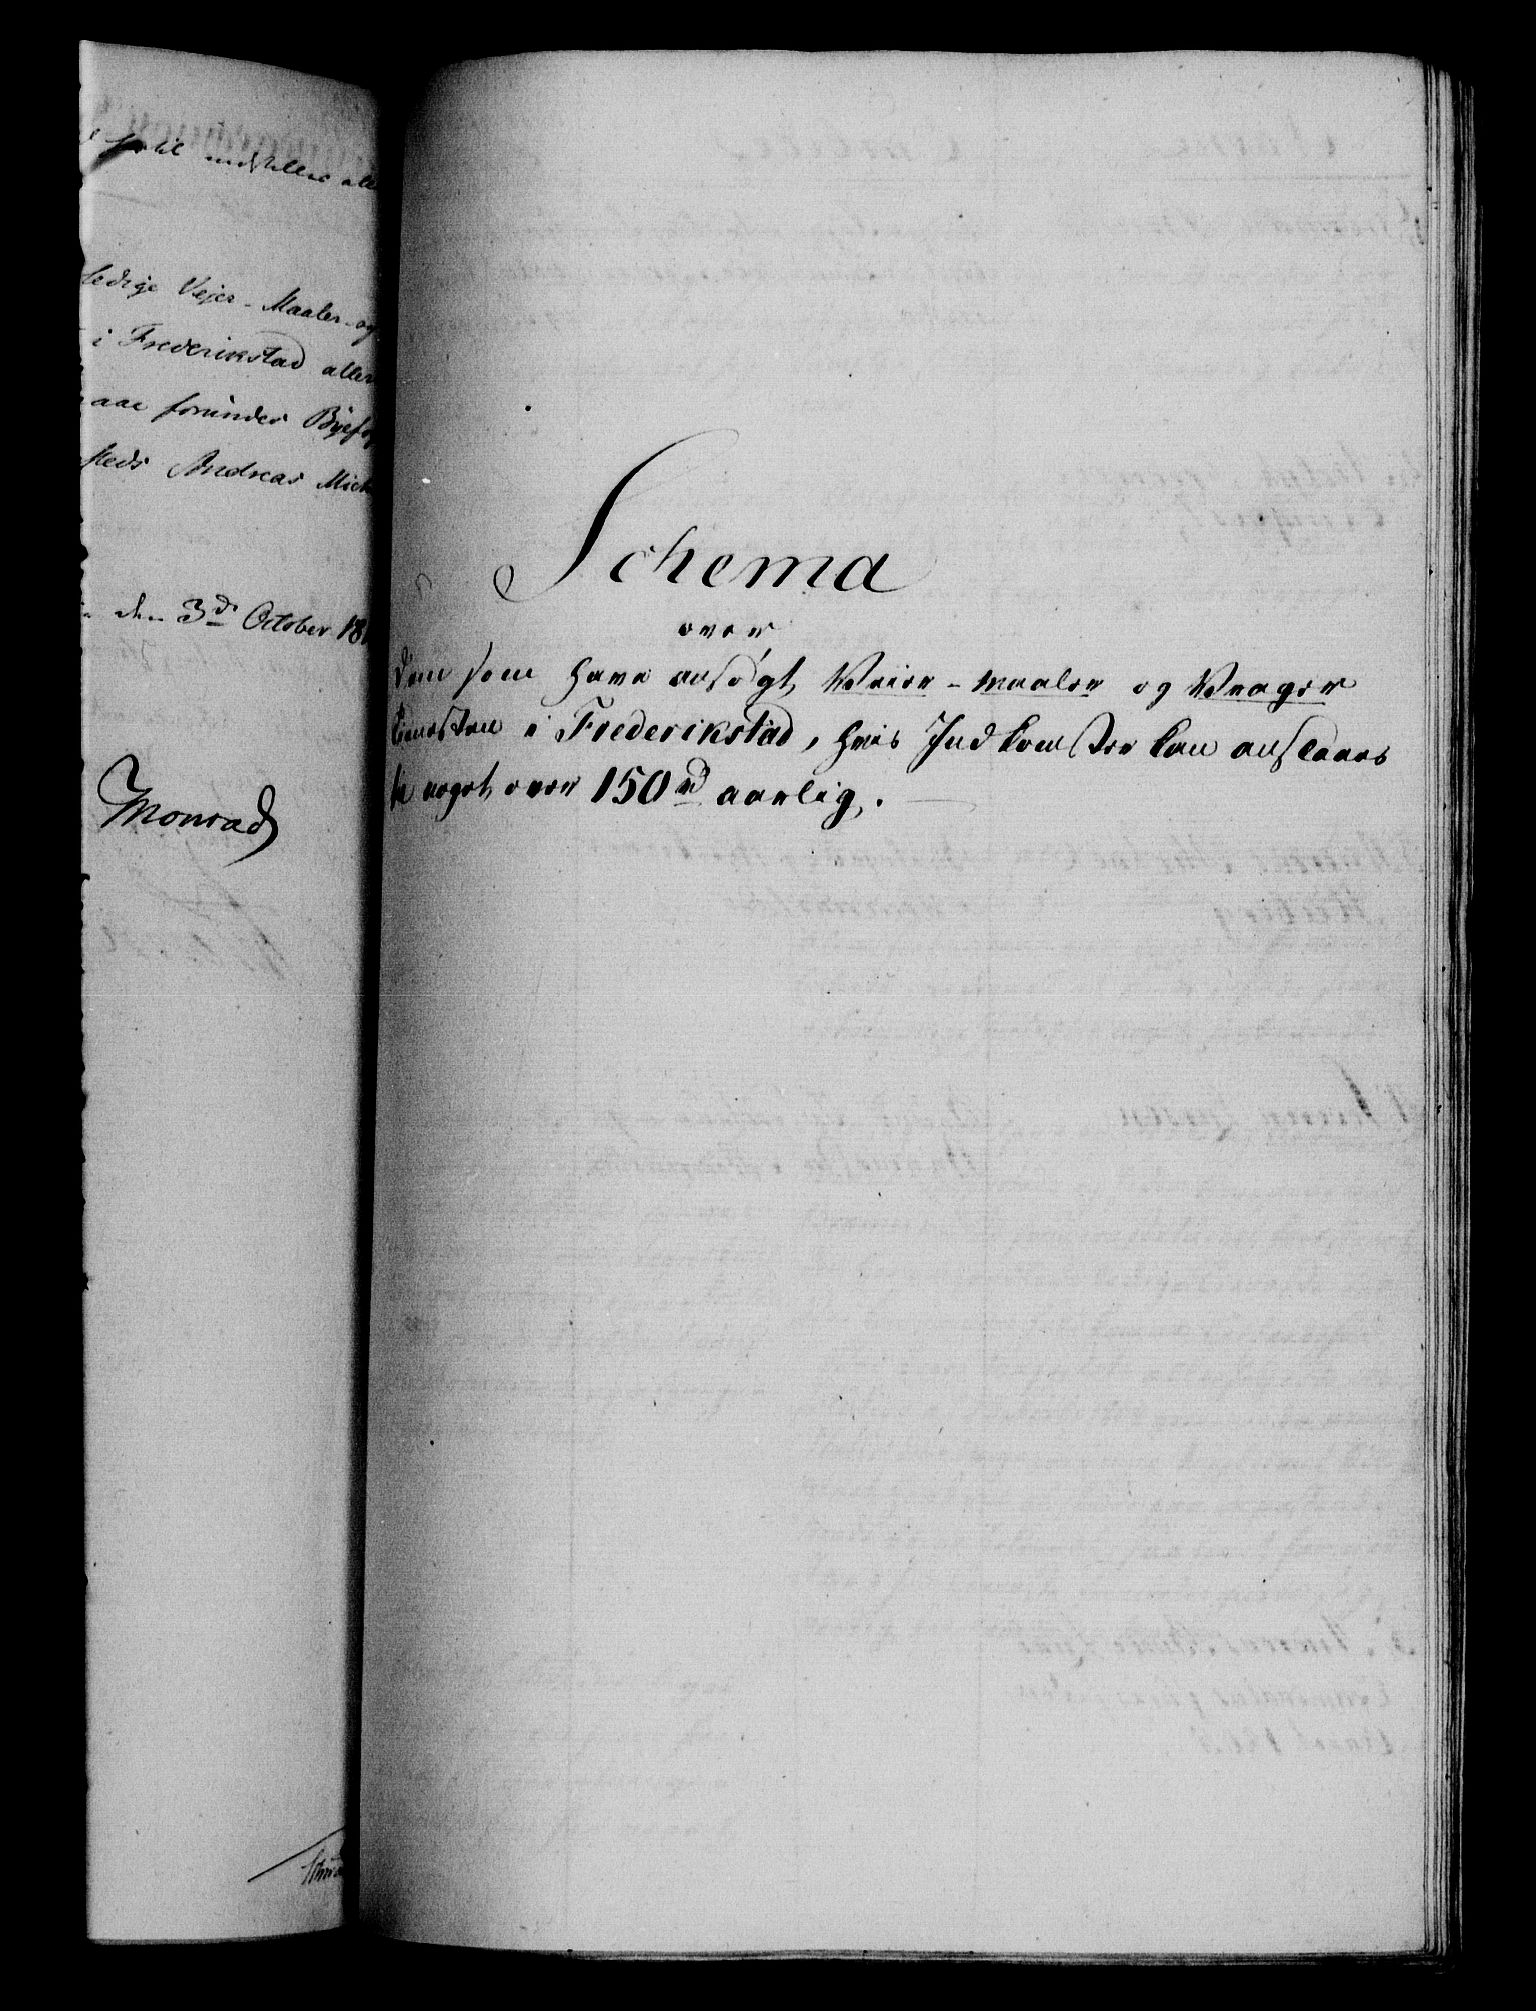 hertil indstilles aller
ledige Vejer- Maaler- og
i Frederikstad aller
maae forundes Byef
steds Andreas Mich
den 3d October 18
Monrad
Schema
over
dem som have ansøgt Veier- maaler og Vrager
tienesten i Frederikstad, hvis Indkomster kan anslaaes
til noget over 150 rd aarlig.